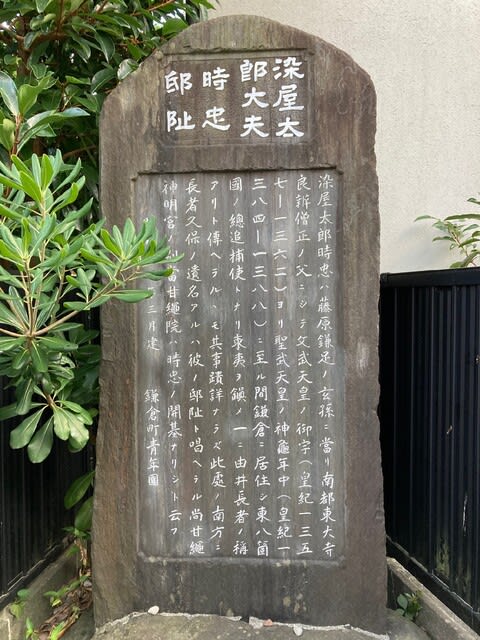 染屋太
郎大夫
時忠
邸阯
染屋太郎時忠ハ藤原鎌足ノ玄孫ニ當リ南都東大寺
良辨僧正ノ父ニシテ文武天皇ノ御宇(皇紀一三五
七ー一三六二)ヨリ聖武天皇ノ神龜年中(皇紀一
三八四ー一三八八)ニ至ル間鎌倉ニ居住シ東八箇
國ノ總追捕使トナリ東夷ヲ鎮ノ一ニ由井長者ノ稱
アリト傳ヘラルヽモ其事蹟詳ナラズ此處ノ南方ニ
長者久保ノ遺名アルハ彼ノ邸阯ト唱ヘラル尚甘繩
神明宮ノ 當甘繩院ハ時忠ノ開基ナリシト云フ
三月建 鎌倉町青年團